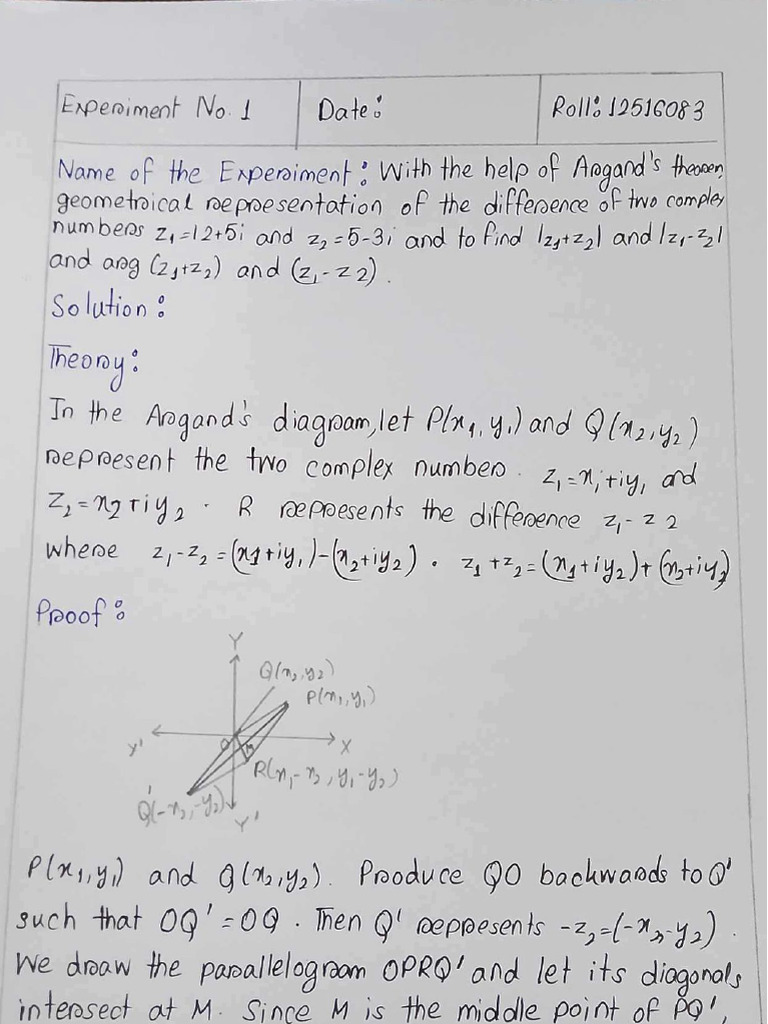 Experiment No. 1
Date:
Roll: 12516083
Name of the Experiment: With the help of Argand's theorem,
geometrical representation of the difference of two complex
numbers z₁=12+5i and z₂=5-3i and to find |z₁+z₂| and |z₁-z₂|
and arg (z₁+z₂) and (z₁-z2).
Solution:
Theory:
In the Argand's diagram, let P(x₁, y₁) and Q(x₂, y₂)
represent the two complex numbers. z₁=x₁+iy₁ and
z₂=x₂+iy₂. R represents the difference z₁-z2
where z₁-z₂=(x₁+iy₁)-(x₂+iy₂). z₁+z₂=(x₁+iy₂)+(x₂+iy₂)
Proof:
Y
Q(x₂,y₂)
P(x₁,y₁)
X'
O
M
X
R(x₁-x₂, y₁-y₂)
Q'(-x₂,-y₂)
Y'
P(x₁,y₁) and Q(x₂,y₂). Produce QO backwards to Q'
such that OQ'=OQ. Then Q' represents -z₂=(-x₂,-y₂).
We draw the parallelogram OPRQ' and let its diagonals
intersect at M. Since M is the middle point of PQ',